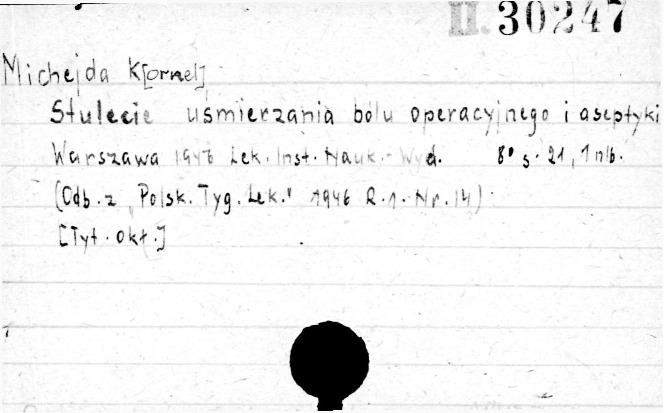 II. 30247
Michejda K[ornel]
Stulecie uśmierzania bólu operacyjnego i aseptyki
Warszawa 1946 Lek. Inst. Nauk.-Wyd. 8° s. 21, 1 nlb.
(Odb. z „Polsk. Tyg. Lek." 1946 R.1. Nr. 14)
[Tyt. okł.]